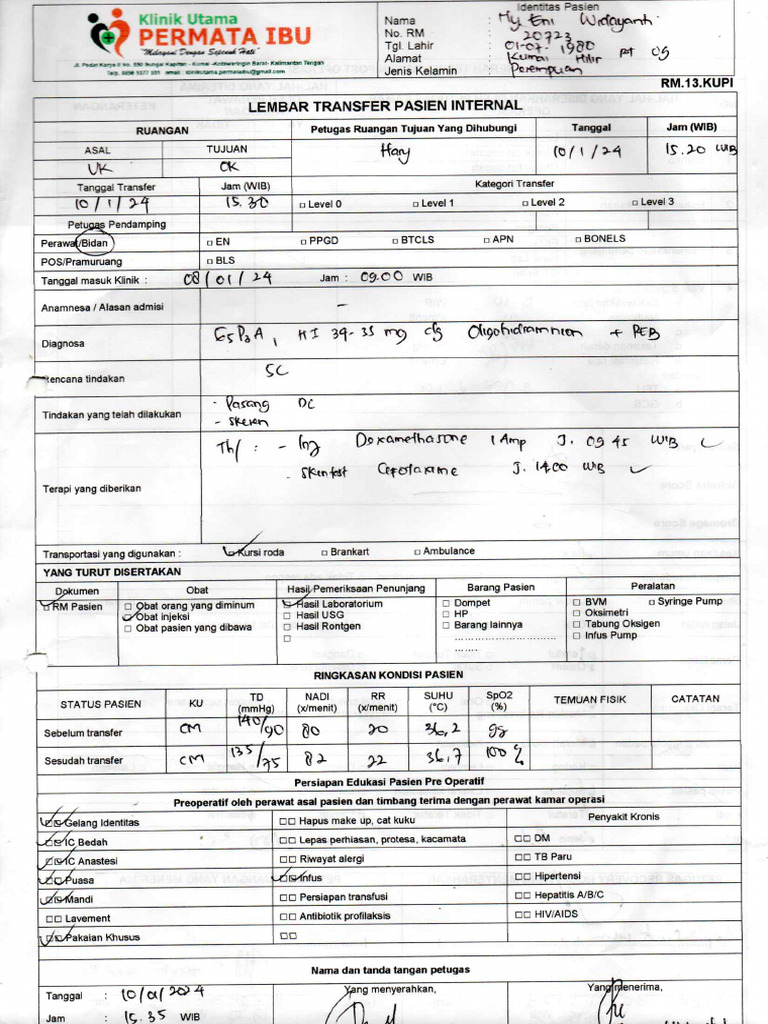 Klinik Utama
PERMATA IBU
"Melayani Dengan Sepenuh Hati"
Jl. Padat Karya II No. 550 Sungai Kapitan - Kumai -Kotawaringin Barat- Kalimantan Tengah
Telp. 0858 5377 551 email : klinikutama.permataibu@gmail.com
Identitas Pasien
Nama : Ny Eni Widayanti
No. RM : 20723
Tgl. Lahir : 01-07-1980
Alamat : Kumai Hilir rt 09
Jenis Kelamin : Perempuan
RM.13.KUPI
LEMBAR TRANSFER PASIEN INTERNAL
RUANGAN Petugas Ruangan Tujuan Yang Dihubungi Tanggal Jam (WIB)
ASAL TUJUAN Hary 10/1/24 15.20 WIB
VK OK
Tanggal Transfer Jam (WIB) Kategori Transfer
10/1/24 15.30 □ Level 0 □ Level 1 □ Level 2 □ Level 3
Petugas Pendamping
Perawat/Bidan □ EN □ PPGD □ BTCLS □ APN □ BONELS
POS/Pramuruang □ BLS
Tanggal masuk Klinik : 08/01/24 Jam : 09.00 WIB
Anamnesa / Alasan admisi -
Diagnosa G5P3A1 HI 34-35 mg dg Oligohidramnion + PEB
Rencana tindakan SC
Tindakan yang telah dilakukan - Pasang DC
- Skeren
Terapi yang diberikan Th/ : - Inj Dexamethasone 1 Amp J. 09 45 WIB ✓
- Skintest Cefotaxime J. 14.00 WIB ✓
Transportasi yang digunakan : ✓ Kursi roda □ Brankart □ Ambulance
YANG TURUT DISERTAKAN
Dokumen Obat Hasil Pemeriksaan Penunjang Barang Pasien Peralatan
✓ RM Pasien □ Obat orang yang diminum ✓ Hasil Laboratorium □ Dompet □ BVM □ Syringe Pump
✓ Obat injeksi □ Hasil USG □ HP □ Oksimetri
□ Obat pasien yang dibawa □ Hasil Rontgen □ Barang lainnya □ Tabung Oksigen
□ ........................... □ Infus Pump
........
RINGKASAN KONDISI PASIEN
STATUS PASIEN KU TD (mmHg) NADI (x/menit) RR (x/menit) SUHU (°C) SpO2 (%) TEMUAN FISIK CATATAN
Sebelum transfer CM 140/90 80 20 36,2 99
Sesudah transfer CM 135/75 82 22 36,7 100 %
Persiapan Edukasi Pasien Pre Operatif
Preoperatif oleh perawat asal pasien dan timbang terima dengan perawat kamar operasi
✓✓ Gelang Identitas □□ Hapus make up, cat kuku Penyakit Kronis
✓✓ IC Bedah □□ Lepas perhiasan, protesa, kacamata □□ DM
✓✓ IC Anastesi □□ Riwayat alergi □□ TB Paru
✓✓ Puasa ✓✓ Infus □□ Hipertensi
✓✓ Mandi □□ Persiapan transfusi □□ Hepatitis A/B/C
□□ Lavement □□ Antibiotik profilaksis □□ HIV/AIDS
✓✓ Pakaian Khusus □□
Nama dan tanda tangan petugas
Tanggal : 10/01/2024 Yang menyerahkan, Yang menerima,
Jam : 15.35 WIB